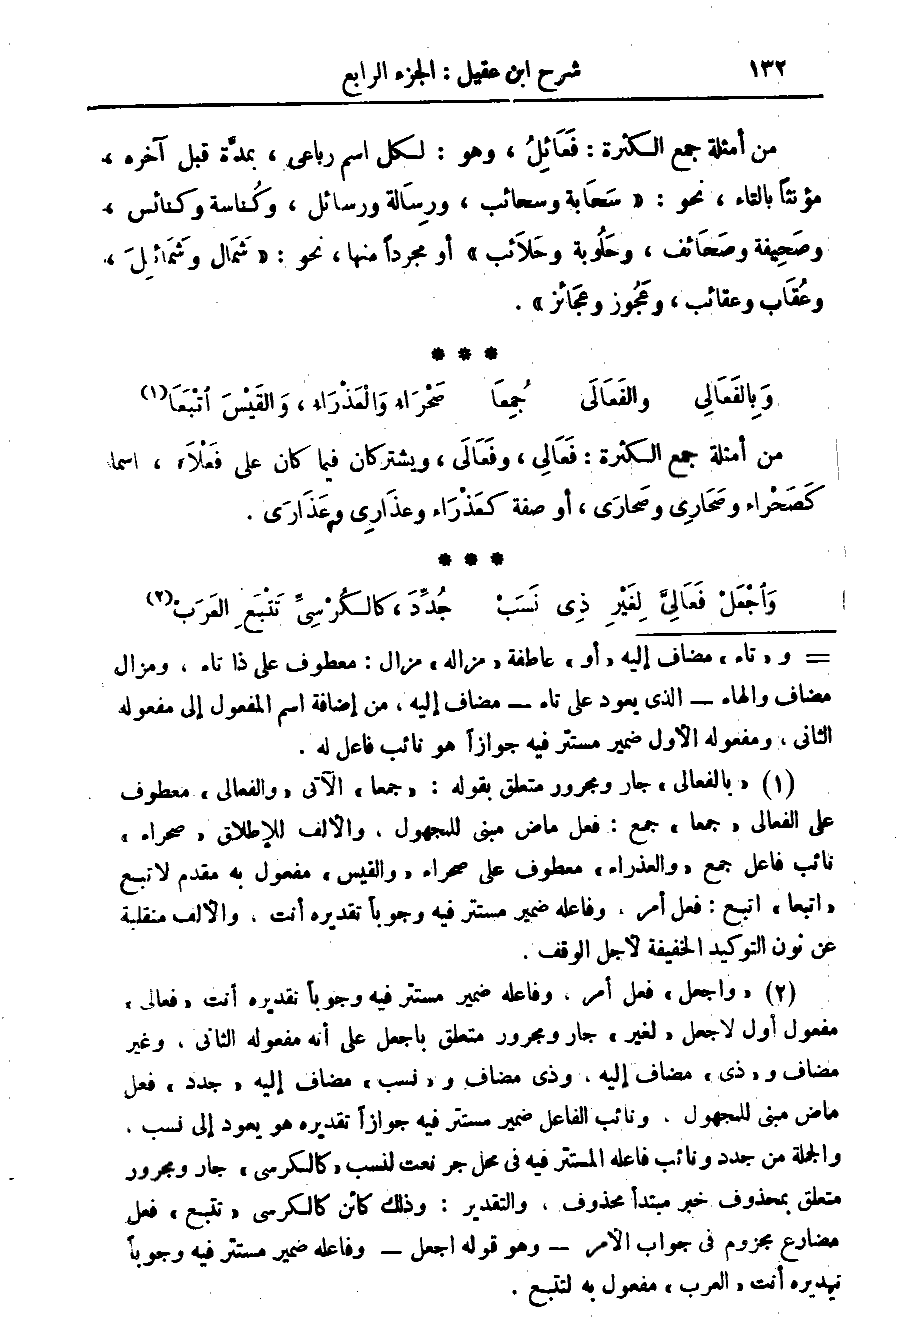 ١٣٢ شرح ابن عقيل : الجزء الرابع
من أمثلة جمع الكثرة : فَعَائِلُ ، وهو : لكل اسم رباعى ، بمدَّة قبل آخره ،
مؤنثاً بالتاء ، نحو : « سَحَابة وسحائب ، ورِسَالة ورسائل ، وكُناسة وكنائس ،
وصَحِيفة وصَحَائف ، وحَلُوبة وحَلَائب » أو مجرداً منها ، نحو : « شَمَال وشَمَائِلَ ،
وعُقَاب وعقائب ، وعَجُوز وعجَائز » .
* * *
وَبِالفَعَالِى والفَعَالَى جُمِعَا صَحْرَاء وَالْعَذْرَاء ، وَالقَيْسَ اتْبَعَا (١)
من أمثلة جمع الكثرة : فَعَالِى ، وفَعَالَى ، ويشتركان فيما كان على فَعْلَاَء ، اسما
كَصَحْراء وصَحَارِى وصَحارَى ، أو صفة كعَذْرَاء وعذَارِى وعَذَارَى .
* * *
وَاجْعَلْ فَعَالِىَّ لِغَيْرِ ذِى نَسَبْ جُدِّدَ ، كالكُرْسِىِّ تَتْبَعِ العَرَبْ (٢)
= و « تاء » مضاف إليه « أو » عاطفة « مزاله » مزال : معطوف على ذا تاء ، ومزال
مضاف والهاء — الذى يعود على تاء — مضاف إليه ، من إضافة اسم المفعول إلى مفعوله
الثانى ، ومفعوله الأول ضمير مستتر فيه جوازاً هو نائب فاعل له .
(١) « بالفعالى » جار ومجرور متعلق بقوله : « جمعا » الآتى « والفعالى » معطوف
على الفعالى « جمعا » جمع : فعل ماض مبنى للمجهول ، والألف للإطلاق « صحراء »
نائب فاعل جمع « والعذراء » معطوف على صحراء « والقيس » مفعول به مقدم لاتبع
« اتبعا » اتبع : فعل أمر ، وفاعله ضمير مستتر فيه وجوباً تقديره أنت ، والألف منقلبة
عن نون التوكيد الخفيفة لأجل الوقف .
(٢) « واجعل » فعل أمر ، وفاعله ضمير مستتر فيه وجوباً تقديره أنت « فعالى »
مفعول أول لاجعل « لغير » جار ومجرور متعلق باجعل على أنه مفعوله الثانى ، وغير
مضاف و « ذى » مضاف إليه ، وذى مضاف و « نسب » مضاف إليه « جدد » فعل
ماض مبنى للمجهول ، ونائب الفاعل ضمير مستتر فيه جوازاً تقديره هو يعود إلى نسب ،
والجملة من جدد ونائب فاعله المستتر فيه فى محل جر نعت لنسب « كالكرسى » جار ومجرور
متعلق بمحذوف خبر مبتدأ محذوف ، والتقدير : وذلك كائن كالكرسى « تتبع » فعل
مضارع مجزوم فى جواب الأمر — وهو قوله اجعل — وفاعله ضمير مستتر فيه وجوباً
تقديره أنت « العرب » مفعول به لتتبع .